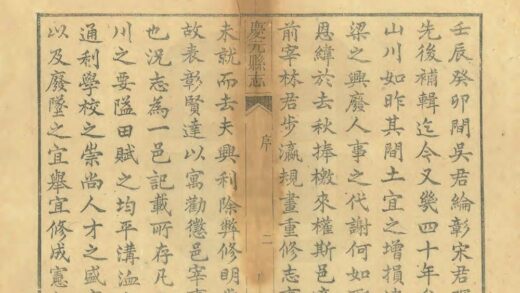 壬辰癸卯間吳君綸彰宋君
先後補輯迄今又幾四十年
山川如昨其間土宜之增損
梁之興廢人事之代謝何如
恩緯於去秋捧檄來權斯邑
前宰林君步瀛規畫重修志
慶元縣志
序
二
未就而去夫興利除弊修明
故表彰賢達以寓勸懲邑宰
也況志為一邑記載所存凡
川之要隘田賦之均平溝洫
通利學校之崇尚人才之盛
以及廢墜之宜舉宜修成憲